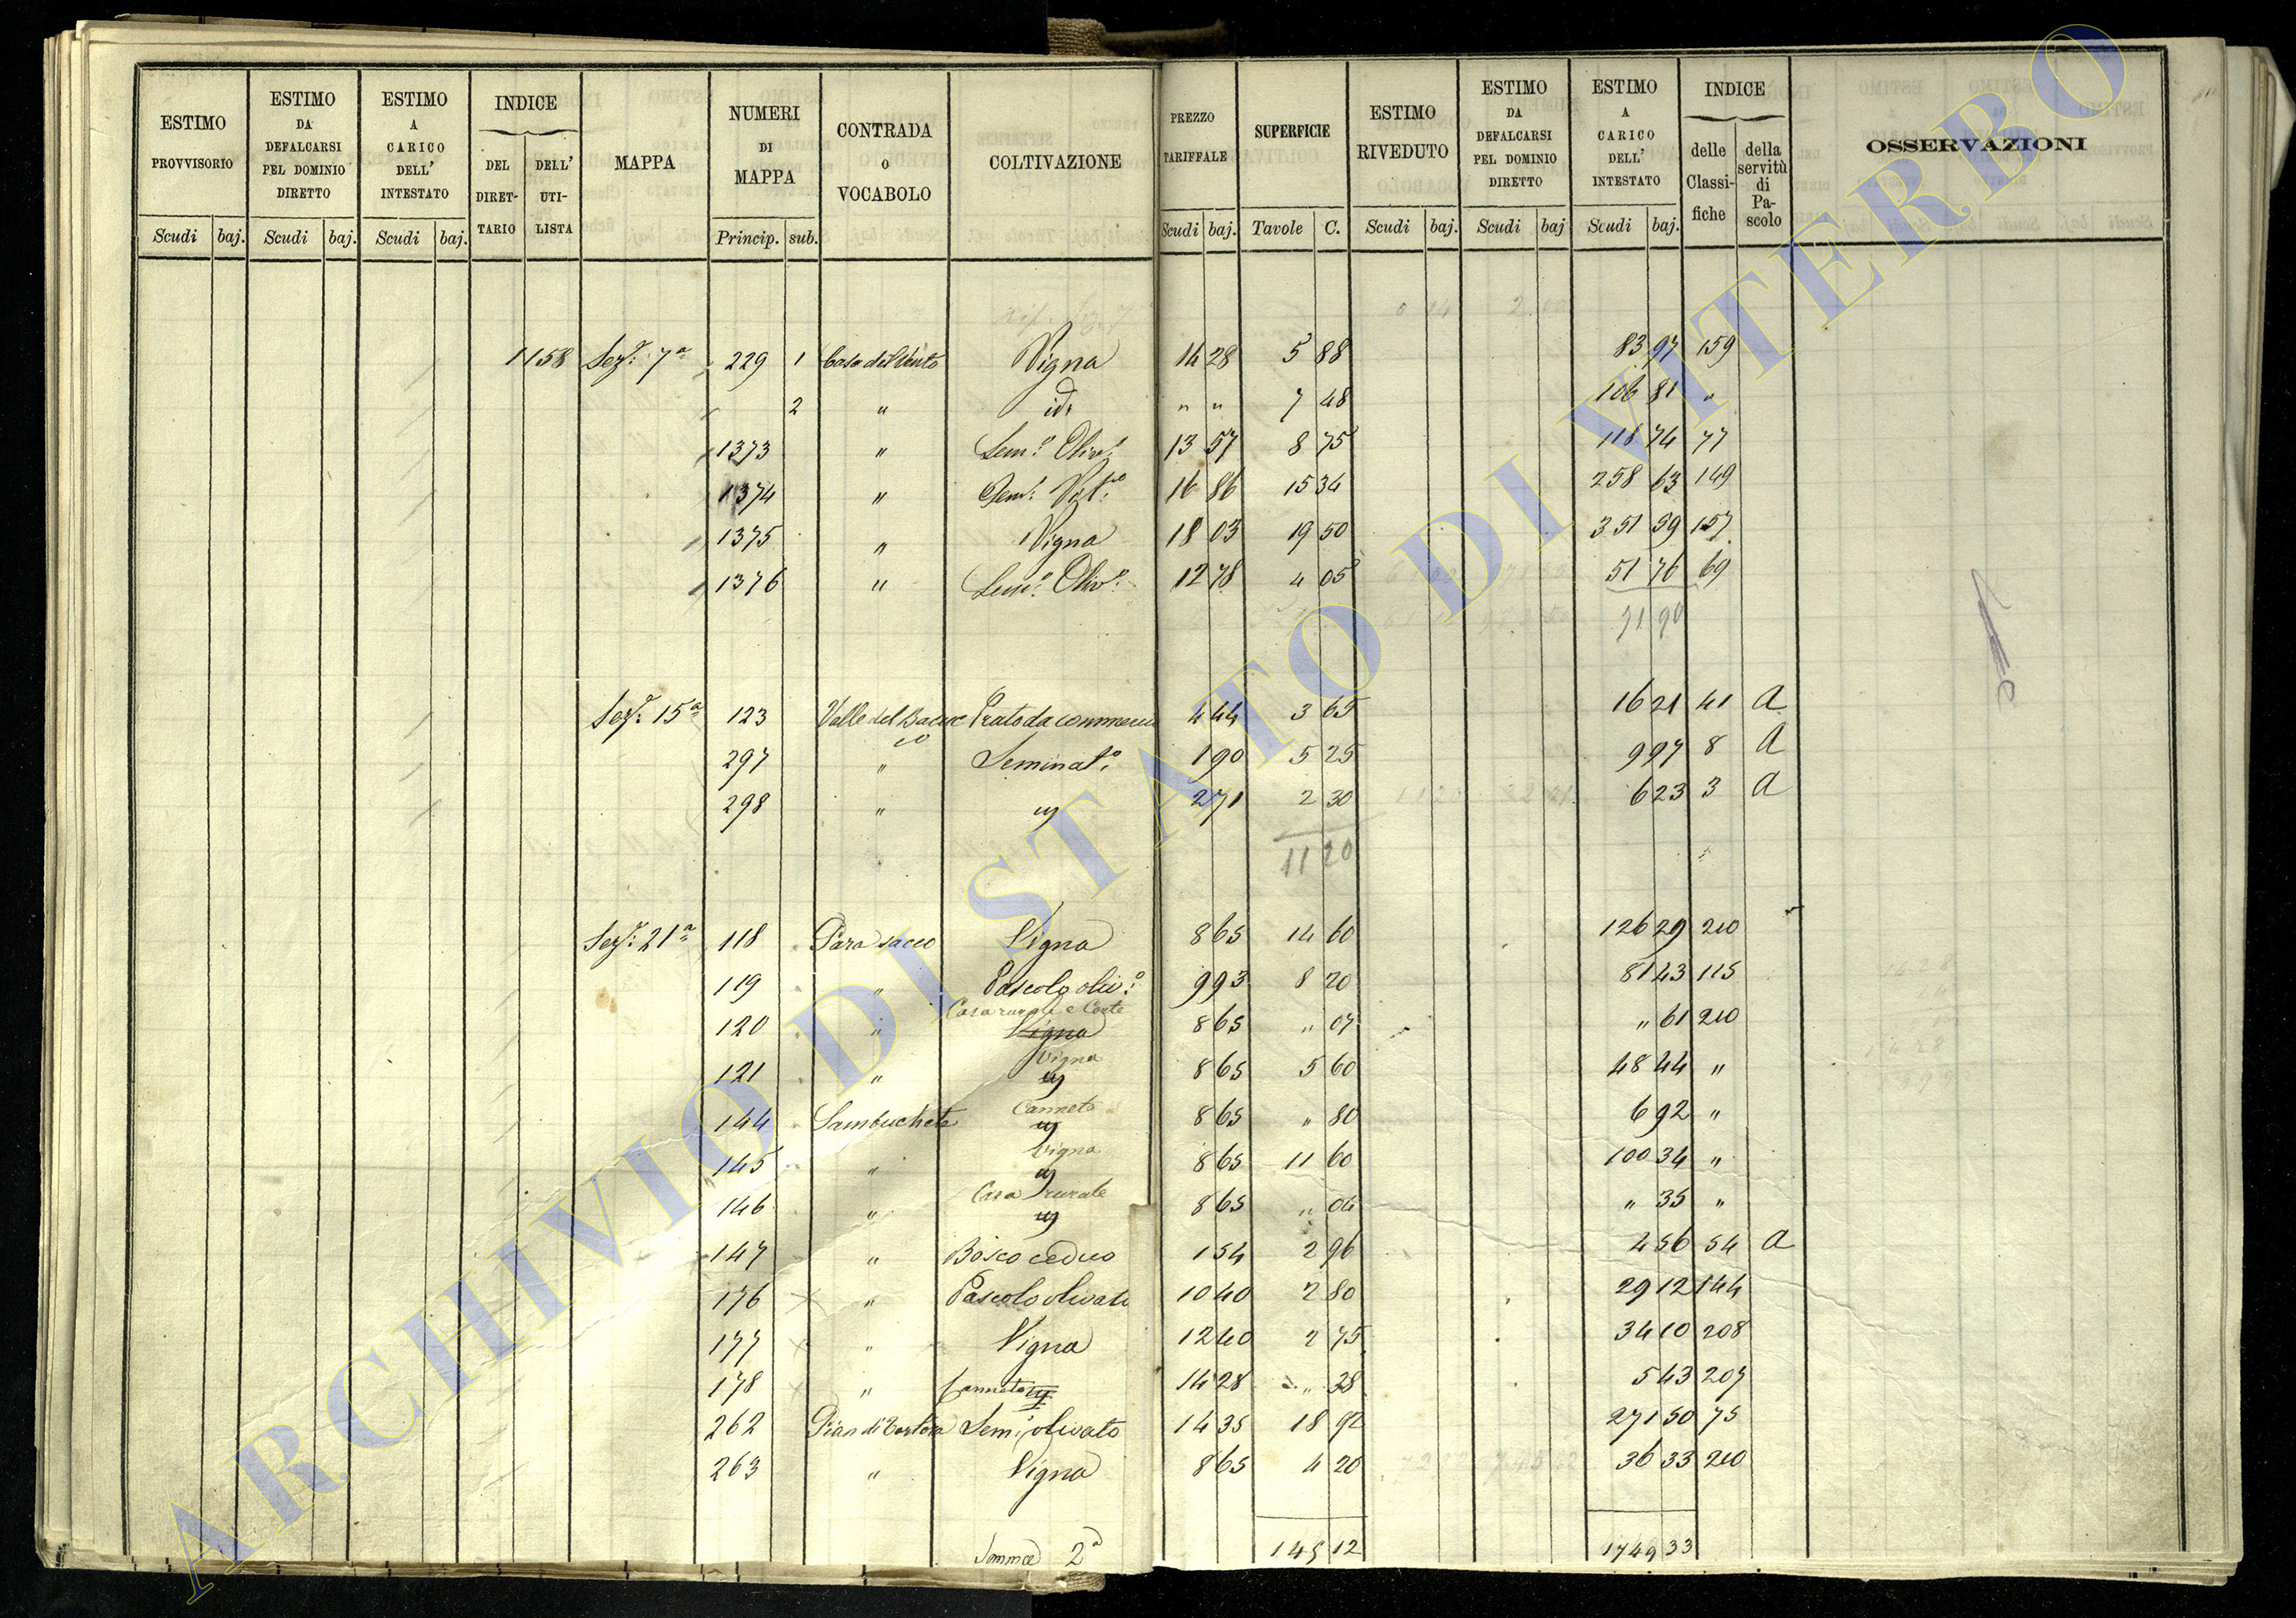 ESTIMO PROVVISORIO | ESTIMO DA DEFALCARSI PEL DOMINIO DIRETTO | ESTIMO A CARICO DELL' INTESTATO | INDICE DEL DIRET-TARIO | DELL' UTI-LISTA | MAPPA | NUMERI DI MAPPA | CONTRADA o VOCABOLO | COLTIVAZIONE | PREZZO TARIFFALE | SUPERFICIE | ESTIMO RIVEDUTO | ESTIMO DA DEFALCARSI PEL DOMINIO DIRETTO | ESTIMO A CARICO DELL' INTESTATO | INDICE delle Classi-fiche | della servitù di Pa-scolo | OSSERVAZIONI
Scudi baj. | Scudi baj. | Scudi baj. | Princip. sub. | Scudi baj. | Tavole C. | Scudi baj. | Scudi baj | Scudi baj.
1158 Sezᵉ: 7ª 229 1 Casa del Vento Vigna 14 28 5 88 83 97 159
2 " id. " " 7 48 106 81 "
1373 " Semº: Olivº: 13 57 8 75 118 74 77
1374 " Semº: Vitº: 16 86 15 34 258 63 149
1375 " Vigna 18 03 19 50 351 59 157
1376 " Semº: Olivº: 12 78 4 05 51 76 69
Sezᵉ: 15ª 123 Valle del Prato da commercio 4 44 3 65 16 21 41 a
297 " Seminatº: 1 90 5 25 9 97 8 a
298 " " 2 71 2 30 6 23 3 a
11 20
Sezᵉ: 21ª 118 Para sacco Vigna 8 65 14 60 126 29 210
119 " Pascolo olivº: 9 93 8 20 81 43 115
Casa rurale e Corte
120 " Vigna 8 65 " 07 " 61 210
Vigna
121 " " 8 65 5 60 48 44 "
Canneto
144 Sambucheto " 8 65 " 80 6 92 "
Vigna
145 " " 8 65 11 60 100 34 "
Casa rurale
146 " " 8 65 " 04 " 35 "
147 " Bosco ceduo 1 54 2 96 4 56 54 a
176 " Pascolo olivato 10 40 2 80 29 12 144
177 " Vigna 12 40 2 75 34 10 208
178 " Canneto 14 28 " 38 5 43 207
262 Pian di Sem: olivato 14 35 18 92 271 50 75
263 " Vigna 8 65 4 20 36 33 210
Somma 2ª 145 12 1749 33
ARCHIVIO DI STATO DI VITERBO